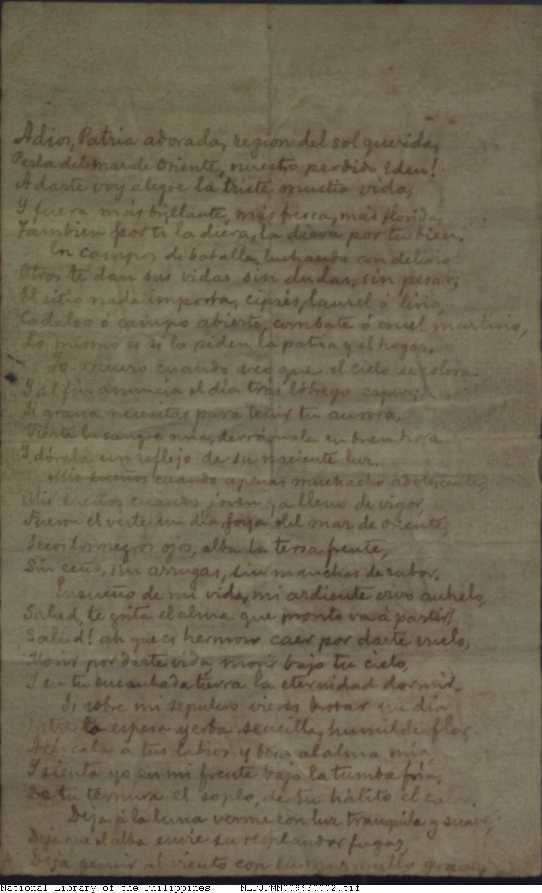 Adios, Patria adorada, region del sol querida,
Perla del mar de Oriente, nuestro perdido Eden!
A darte voy alegre la triste mustia vida,
Y fuera más brillante, más fresca, más florida,
Tambien por ti la diera, la diera por tu bien.
En campos de batalla, luchando con delirio
Otros te dan sus vidas sin dudas, sin pesar;
El sitio nada importa, ciprés, laurel ó lirio,
Cadalso ó campo abierto, combate ó cruel martirio,
Lo mismo es si lo piden la patria y el hogar.
Yo muero cuando veo que el cielo se colora
Y al fin anuncia el día tras lóbrego capuz;
Si grana necesitas para teñir tu aurora,
Vierte la sangre mía, derrámala en buen hora
Y dórela un reflejo de su naciente luz.
Mis sueños cuando apenas muchacho adolescente,
Mis sueños cuando joven ya lleno de vigor,
Fueron el verte un día, joya del mar de oriente,
Secos los negros ojos, alta la tersa frente,
Sin ceño, sin arrugas, sin manchas de rubor.
Ensueño de mi vida, mi ardiente vivo anhelo,
Salud, te grita el alma que pronto va á partir!
Salud! ah que es hermoso caer por darte vuelo,
Morir por darte vida, morir bajo tu cielo,
Y en tu encantada tierra la eternidad dormir.
Si sobre mi sepulcro vieres brotar un día
Entre la espesa yerba sencilla, humilde flor,
Acércala a tus labios y besa al alma mía,
Y sienta yo en mi frente bajo la tumba fría,
De tu ternura el soplo, de tu hálito el calor.
Deja á la luna verme con luz tranquila y suave;
Deja que el alba envíe su resplandor fugaz,
Deja gemir al viento con su murmullo grave,
National Library of the Philippines